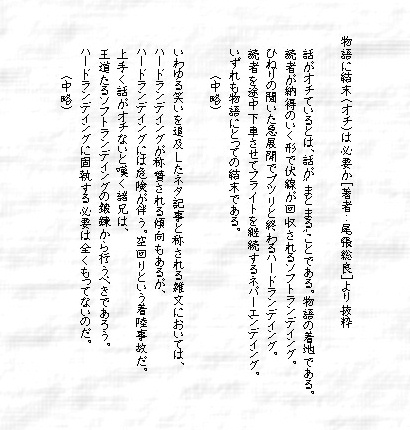 物語に結末(オチ)は必要か[著者:尾張総良]より抜粋
話がオチているとは、話が"まとまる"ことである。物語の着地である。
読者が納得のいく形で伏線が回収されるソフトランディング。
ひねりの聞いた急展開でブツリと終わるハードランディング。
読者を途中下車させてフライトを継続するネバーエンディング。
いずれも物語にとっての結末である。
(中略)
いわゆる笑いを追及したネタ記事と称される雑文においては、
ハードランディングが称賛される傾向もあるが、
ハードランディングには危険が伴う。空回りという着陸事故だ。
上手く話がオチないと嘆く諸兄は、
王道たるソフトランディングの鍛錬から行うべきであろう。
ハードランディングに固執する必要は全くもってないのだ。
(中略)